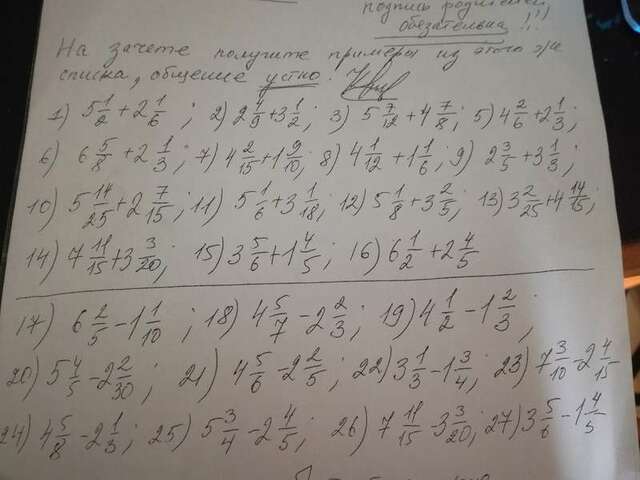 подпись родителей
обезательна !!!
На зачете получите примеры из этого же
списка, общение устно!
1) 5 1/2 + 2 1/6 ; 2) 2 4/9 + 3 1/2 ; 3) 5 7/12 + 4 7/8 ; 5) 4 2/6 + 2 1/3 ;
6) 6 5/8 + 2 1/3 ; 7) 4 2/15 + 1 9/10 ; 8) 4 1/12 + 1 1/6 ; 9) 2 3/5 + 3 1/3 ;
10) 5 14/25 + 2 7/15 ; 11) 5 1/6 + 3 1/18 ; 12) 5 1/8 + 3 2/5 ; 13) 3 2/25 + 4 14/15 ;
14) 7 11/15 + 3 3/20 ; 15) 3 5/6 + 1 4/5 ; 16) 6 1/2 + 2 4/5
17) 6 2/5 - 1 1/10 ; 18) 4 5/7 - 2 2/3 ; 19) 4 1/2 - 1 2/3 ;
20) 5 4/5 - 2 2/30 ; 21) 4 5/6 - 2 2/5 ; 22) 3 1/3 - 1 3/4 ; 23) 7 3/10 - 2 4/15
24) 4 5/8 - 2 1/3 ; 25) 5 3/4 - 2 4/5 ; 26) 7 11/15 - 3 3/20 ; 27) 3 5/6 - 1 4/5